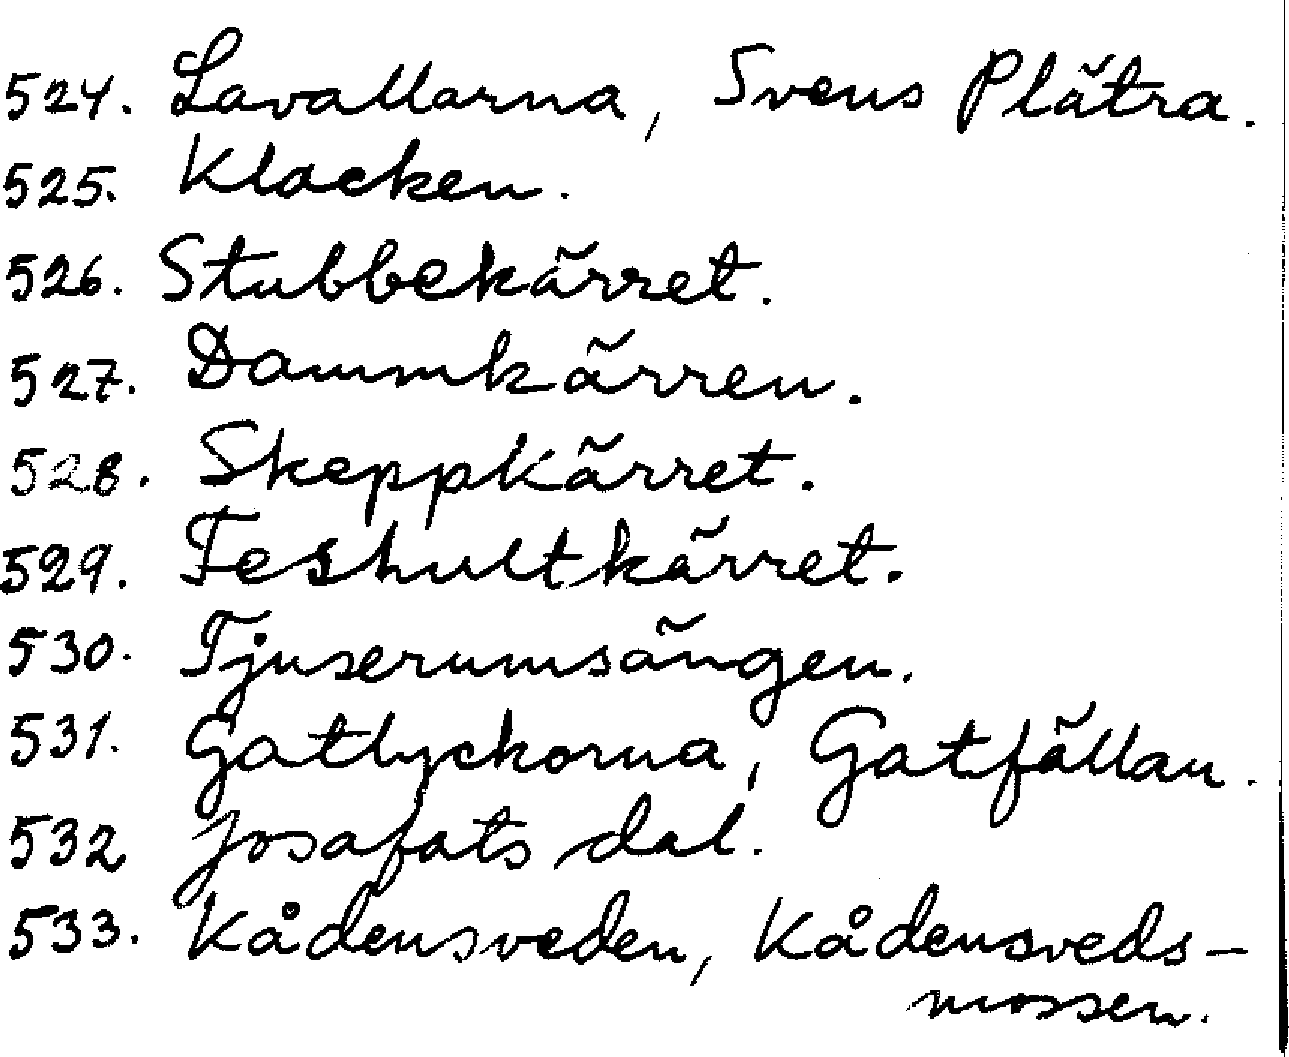 524. Lavallarna, Svens Plätra.
525. Klacken.
526. Stubbekärret.
527. Dammkärren.
528. Skeppkärret.
529. Feshultkärret.
530. Tjuserumsängen.
531. Gatlyckorna, Gatfällan.
532 Josafats dal.
533. Kådensveden, Kådensveds-
mossen.